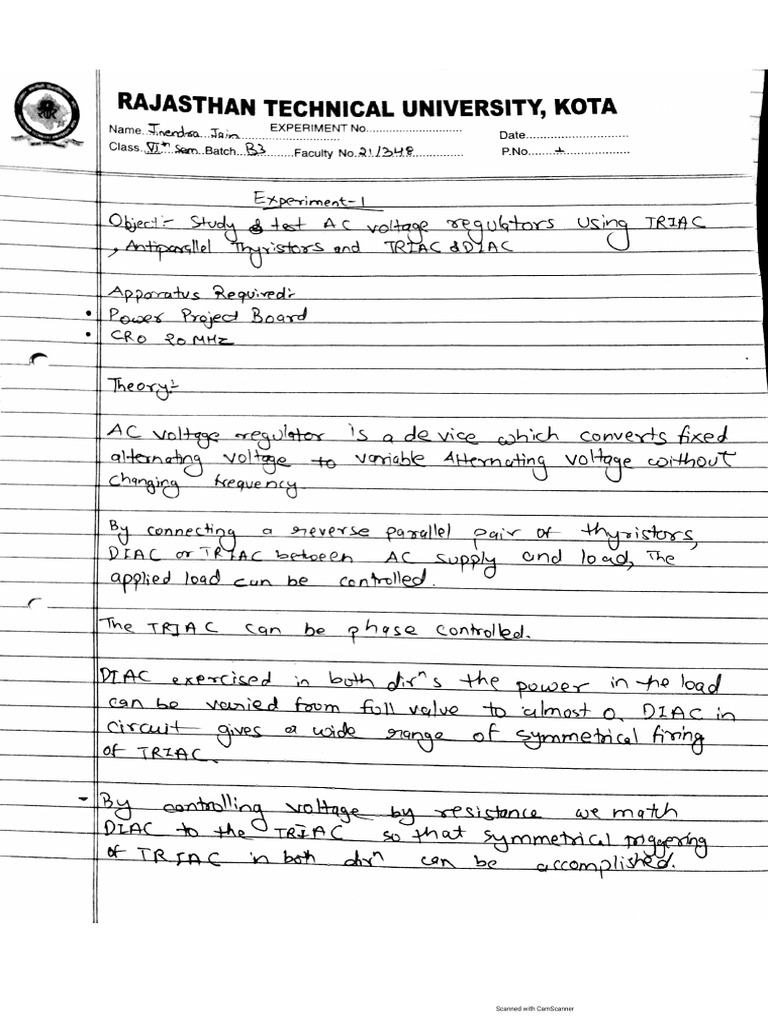 RAJASTHAN TECHNICAL UNIVERSITY, KOTA
Name..Jinendra Jain.......... EXPERIMENT No............................ Date..........................
Class..VIth Sem..Batch..B3.........Faculty No.21/348............... P.No........1..............
Experiment-1
Object:- Study & test AC voltage regulators using TRIAC
, Antiparallel Thyristors and TRIAC & DIAC
Apparatus Required:-
• Power Project Board
• CRO 20 MHz
Theory:-
AC voltage regulator is a device which converts fixed
alternating voltage to variable Alternating voltage without
changing frequency.
By connecting a reverse parallel pair of thyristors,
DIAC or TRIAC between AC supply and load, The
applied load can be controlled.
The TRIAC can be phase controlled.
DIAC exercised in both dirⁿs the power in the load
can be varied from full value to almost 0. DIAC in
circuit gives a wide range of symmetrical firing
of TRIAC.
- By controlling voltage by resistance we match
DIAC to the TRIAC so that symmetrical triggering
of TRIAC in both dirⁿ can be accomplished.
Scanned with CamScanner